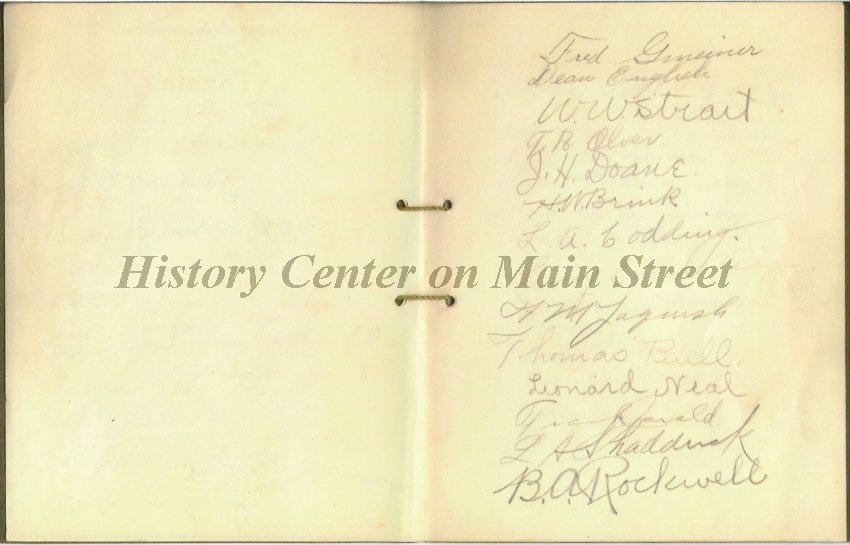 Fred Gmeiner
Dean English
W. W. Strait
J. H. Doane
H. W. Brink
L. A. Codding.
History Center on Main Street
H M Jaquish
Thomas Bull.
Leonard Neal
L A Shadduck
B. A. Rockwell